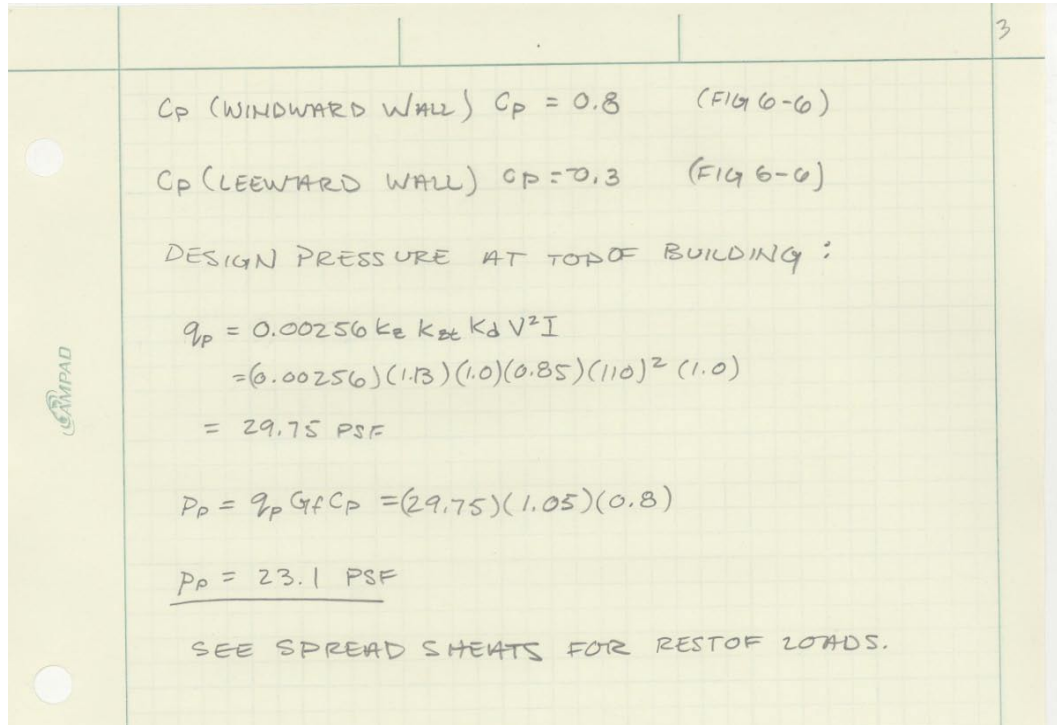 3
Cp (WINDWARD WALL) Cp = 0.8 (FIG 6-6)
Cp (LEEWARD WALL) Cp = -0.3 (FIG 6-6)
DESIGN PRESSURE AT TOP OF BUILDING :
qp = 0.00256 Kz Kzt Kd V²I
=(0.00256)(1.13)(1.0)(0.85)(110)² (1.0)
= 29.75 PSF
Pp = qp Gf Cp =(29.75)(1.05)(0.8)
Pp = 23.1 PSF
SEE SPREAD SHEATS FOR REST OF LOADS.
AMPAD